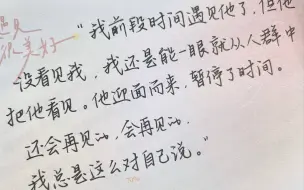 遇见
很美好
"我前段时间遇见他了，但他
没看见我，我还是能一眼就从人群中
把他看见。他迎面而来，暂停了时间。
还会再见的，会再见的，
我总是这么对自己说。"